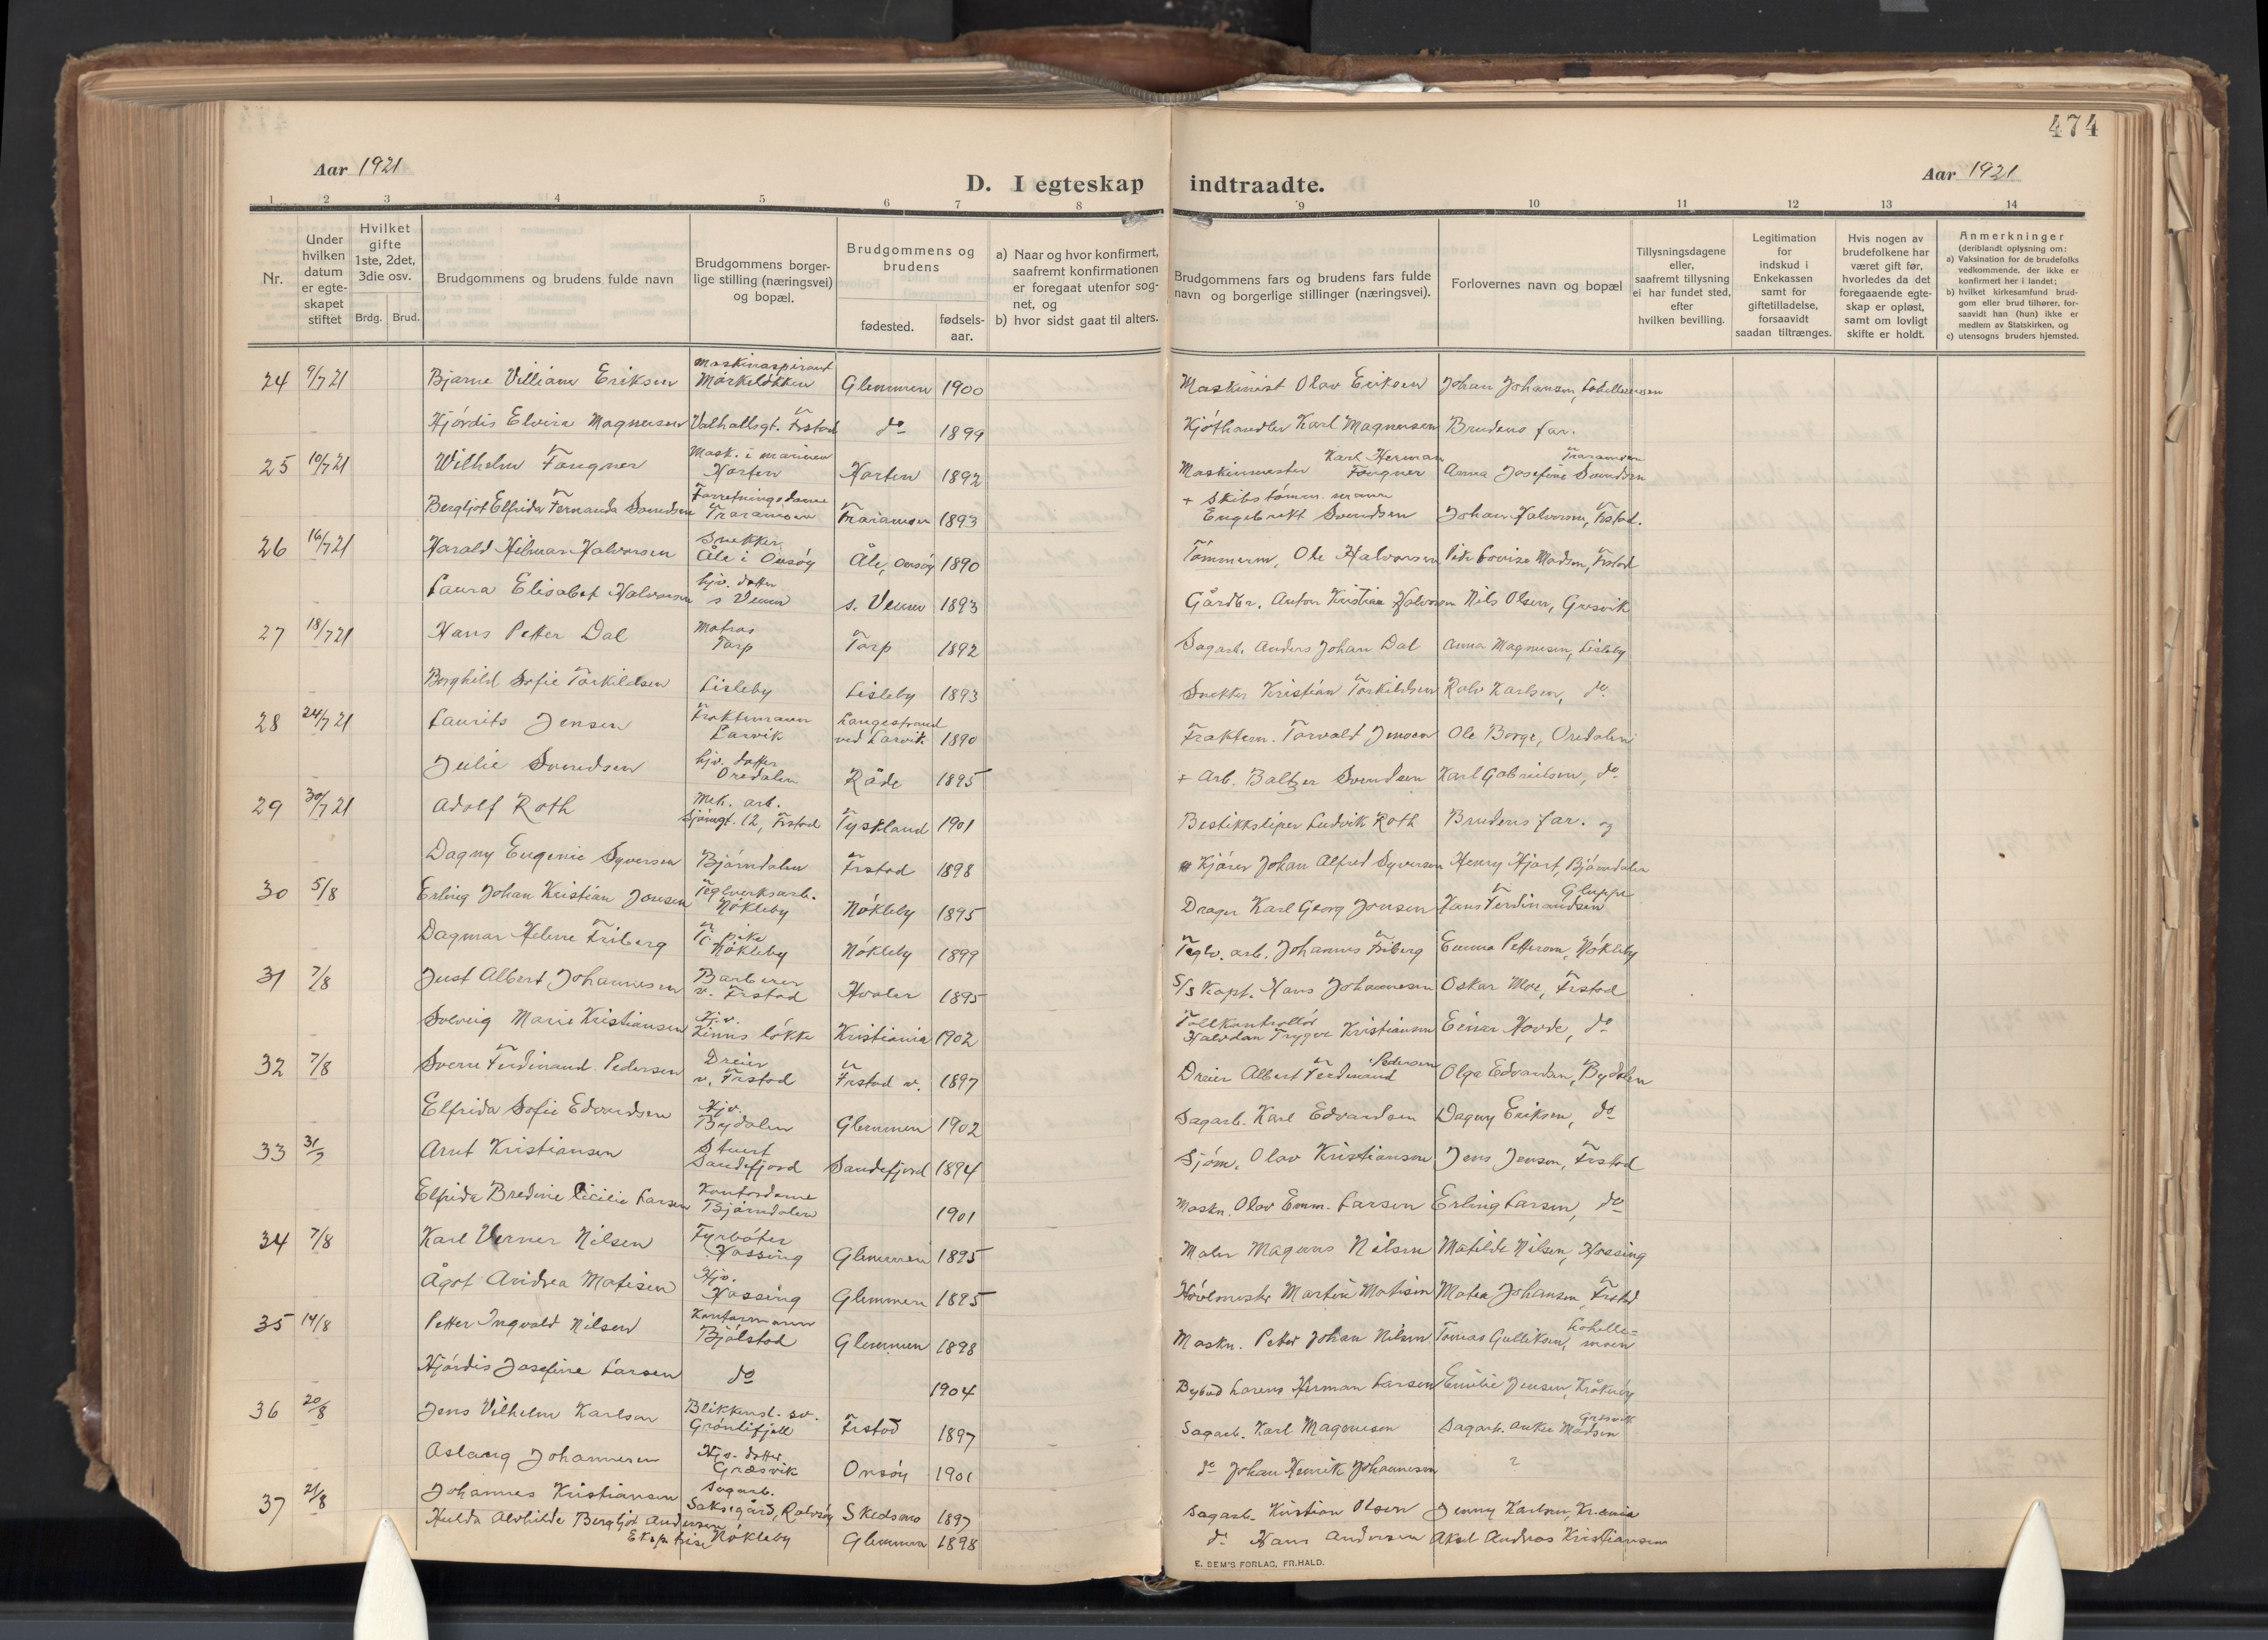 474
Aar 1921
D. I egteskap indtraadte.
Aar 1921
1 2 3 4 5 6 7 8 9 10 11 12 13 14
Nr.
Under hvilken datum er egteskapet stiftet
Hvilket gifte 1ste, 2det, 3die osv.
Brdg. Brud.
Brudgommens og brudens fulde navn
Brudgommens borgerlige stilling (næringsvei) og bopæl.
Brudgommens og brudens
fødested.
fødselsaar.
a) Naar og hvor konfirmert, saafremt konfirmationen er foregaat utenfor sognet, og
b) hvor sidst gaat til alters.
Brudgommens fars og brudens fars fulde navn og borgerlige stillinger (næringsvei).
Forlovernes navn og bopæl
Tillysningsdagene eller, saafremt tillysning ei har fundet sted, efter hvilken bevilling.
Legitimation for indskud i Enkekassen samt for giftetilladelse, forsaavidt saadan tiltrænges.
Hvis nogen av brudefolkene har været gift før, hvorledes da det foregaaende egteskap er opløst, samt om lovligt skifte er holdt.
Anmerkninger
(deriblandt oplysning om:
a) Vaksination for de brudefolks vedkommende, der ikke er konfirmert her i landet;
b) hvilket kirkesamfund brudgom eller brud tilhører, forsaavidt han (hun) ikke er medlem av Statskirken, og
c) utensogns bruders hjemsted.
24 9/7 21 Bjarne Villiam Eriksen Maskinaspirant Mørkeløkken Glemmen 1900 Maskinist Olav Eriksen Johan Johansen,
Hjórdis Elvira Magnusen Valhallsgt. Frstad do 1899 Kjóthandler Karl Magnusen Brudens far.
25 10/7 21 Wilhelm Fougner Mask. i marinen Horten Horten 1892 Maskinmester Karl Herman Fougner Anna Josefine Svendsen Traramoen
Bergljot Elfrida Fernanda Svendsen Forretningsdame Traramoen Traramoen 1893 + Skibstómm.mann Engebrekt Svendsen Johan Halvorsen, Frstad.
26 16/7 21 Harald Hilmar Halvorsen Snekker Åle i Onsóy Åle, Onsóy 1890 Tómmerm. Ole Halvorsen Madsen, Frstad
Laura Elisabet Halvorsen hjv. datter s Veum s. Veum 1893 Gårdbr. Anton Kristian Halvorsen Nils Olsen, Gresvik
27 18/7 21 Hans Petter Dal Matros Torp Torp 1892 Sagarb. Anders Johan Dal Anna Magnusen, Lisleby
Borghild Sofie Torkildsen Lisleby Lisleby 1893 Snekker Kristian Torkildsen Rolv Karlsen, do
28 24/7 21 Laurits Jensen Fraktemann Larvik Langestrand ved Larvik 1890 Fraktem. Torvald Jensen Ole Borge, Oredalen
Julie Svendsen hjv. datter Oredalen Råde 1895 + Arb. Baltzer Svendsen Karl Gabrielsen, do
29 30/7 21 Adolf Roth Mek. arb. Sjómgt. 12, Frstad Tyskland 1901 Bestikksliper Ludvik Roth Brudens far. og
Dagny Eugenie Syversen Bjórndalen Frstad 1898 Kjórer Johan Alfred Syversen Henry Hjort, Bjórndalen
30 5/8 Erling Johan Kristian Jonsen Teglverksarb. Nókleby Nókleby 1895 Drager Karl Georg Jonsen Hans Ferdinandsen Gluppe
Dagmar Helene Friberg Nókleby Nókleby 1899 Teglv. arb. Johannes Friberg Emma Petterson, Nókleby
31 7/8 Just Albert Johannesen Barberer v. Frstad Hvaler 1895 S/S Kapt. Hans Johannesen Oskar Moe, Frstad
Solveig Marie Kristiansen Hjv. Linns lókke Kristiania 1902 Tollkontrollór Halvdan Trygve Kristiansen Einar Hovde, do
32 7/8 Sverre Ferdinand Pedersen Dreier v. Frstad Frstad v. 1897 Dreier Albert Ferdinand Pedersen Olga Edvardsen, Bydalen
Elfrida Sofie Edvardsen Hjv. Bydalen Glemmen 1902 Sagarb. Karl Edvardsen Dagny Eriksen, do
33 31/7 Arnt Kristiansen Stuert Sandefjord Sandefjord 1894 Sjóm. Olav Kristiansen Jens Jensen, Frstad
Elfrida Bredine Cicilie Larsen Kontordame Bjórndalen 1901 Maskn. Olav Emm. Larsen Erling Larsen, do
34 7/8 Karl Verner Nilsen Fyrbóter Hassing Glemmen 1895 Maler Magnus Nilsen Matilde Nilsen, Hassing
Ågot Andrea Matisen Hjv. Hassing Glemmen 1895 Hóvlmester Martin Matisen Matea Johansen, Frstad
35 14/8 Petter Ingvald Nilsen Kontormann Bjólstad Glemmen 1898 Maskn. Petter Johan Nilsen Tomas Gulliksen,
Hjórdis Josefine Larsen do 1904 Bybud Lorens Herman Larsen Emilie Jensen, Kråkeróy
36 20/8 Jens Vilhelm Karlsen Blikkensl. sv. Grónlifjell Frstad 1897 Sagarb. Karl Magnusen Sagarb. Anker Madsen Gresvik
Aslaug Johannesen Hjv. datter Græsvik Onsóy 1901 do Johan Henrik Johannesen ?
37 21/8 Johannes Kristiansen Sagarb. Saksegård, Rolvsóy Skedsmo 1897 Sagarb. Kristian Olsen Jenny Karlsen, Kr.ania
Hulda Alvhilde Bergljot Andersen Nókleby Glemmen 1898 do Hans Andersen Aksel Andreas Kristiansen
E. SEM'S FORLAG, FR.HALD.